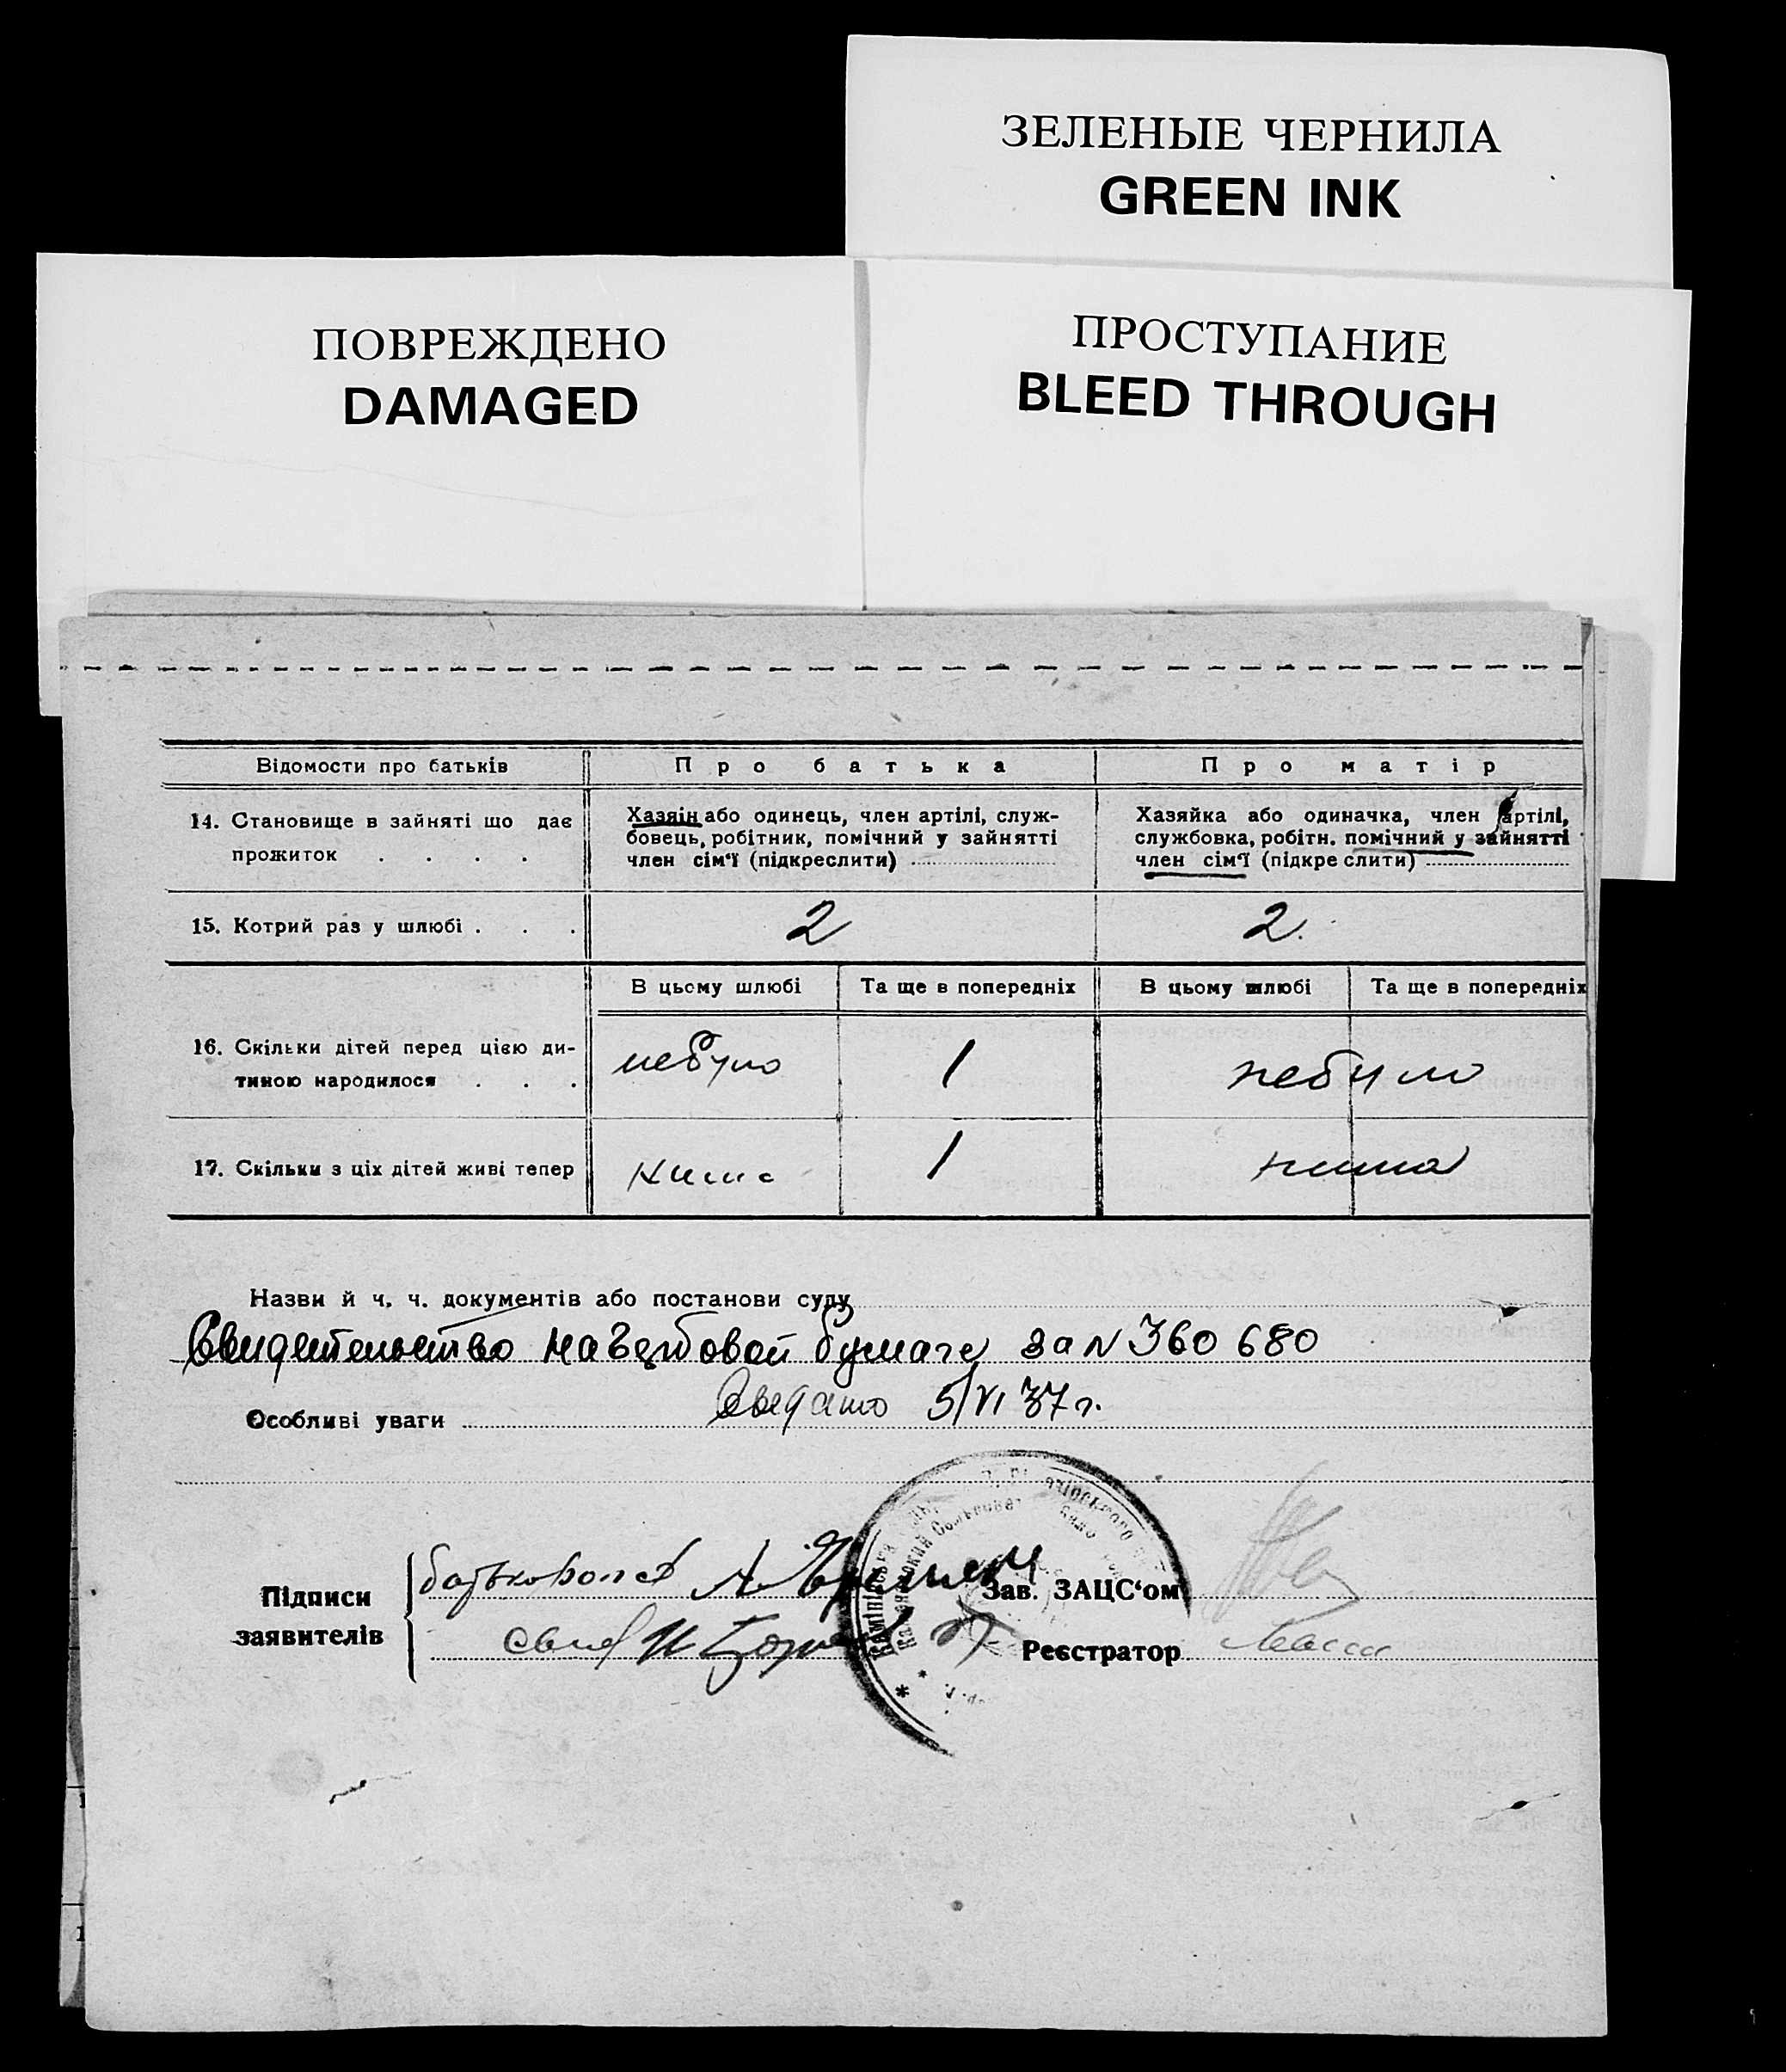 ЗЕЛЕНЫЕ ЧЕРНИЛА
GREEN INK
ПОВРЕЖДЕНО
DAMAGED
ПРОСТУПАНИЕ
BLEED THROUGH
Відомости про батьків
Про батька
Про матір
14. Становище в зайняті що дає
прожиток . . . .
Хазяін або одинець, член артілі, служ-
бовець, робітник, помічний у зайнятті
член сім'ї (підкреслити)
Хазяйка або одиначка, член артілі,
службовка, робітн. помічний у зайнятті
член сім'ї (підкреслити)
15. Котрий раз у шлюбі . . .
2
2.
В цьому шлюбі
Та ще в попередніх
В цьому шлюбі
Та ще в попередніх
16. Скільки дітей перед цією ди-
тиною народилося . . .
небуло
1
небуло
17. Скільки з ціх дітей живі тепер
1
Назви й ч. ч. документів або постанови суду
Свидетельство на гербовой бумаге за N 360 680
Особливі уваги
5/VI 37 г.
Підписи
заявителів
Зав. ЗАЦС'ом
Реєстратор